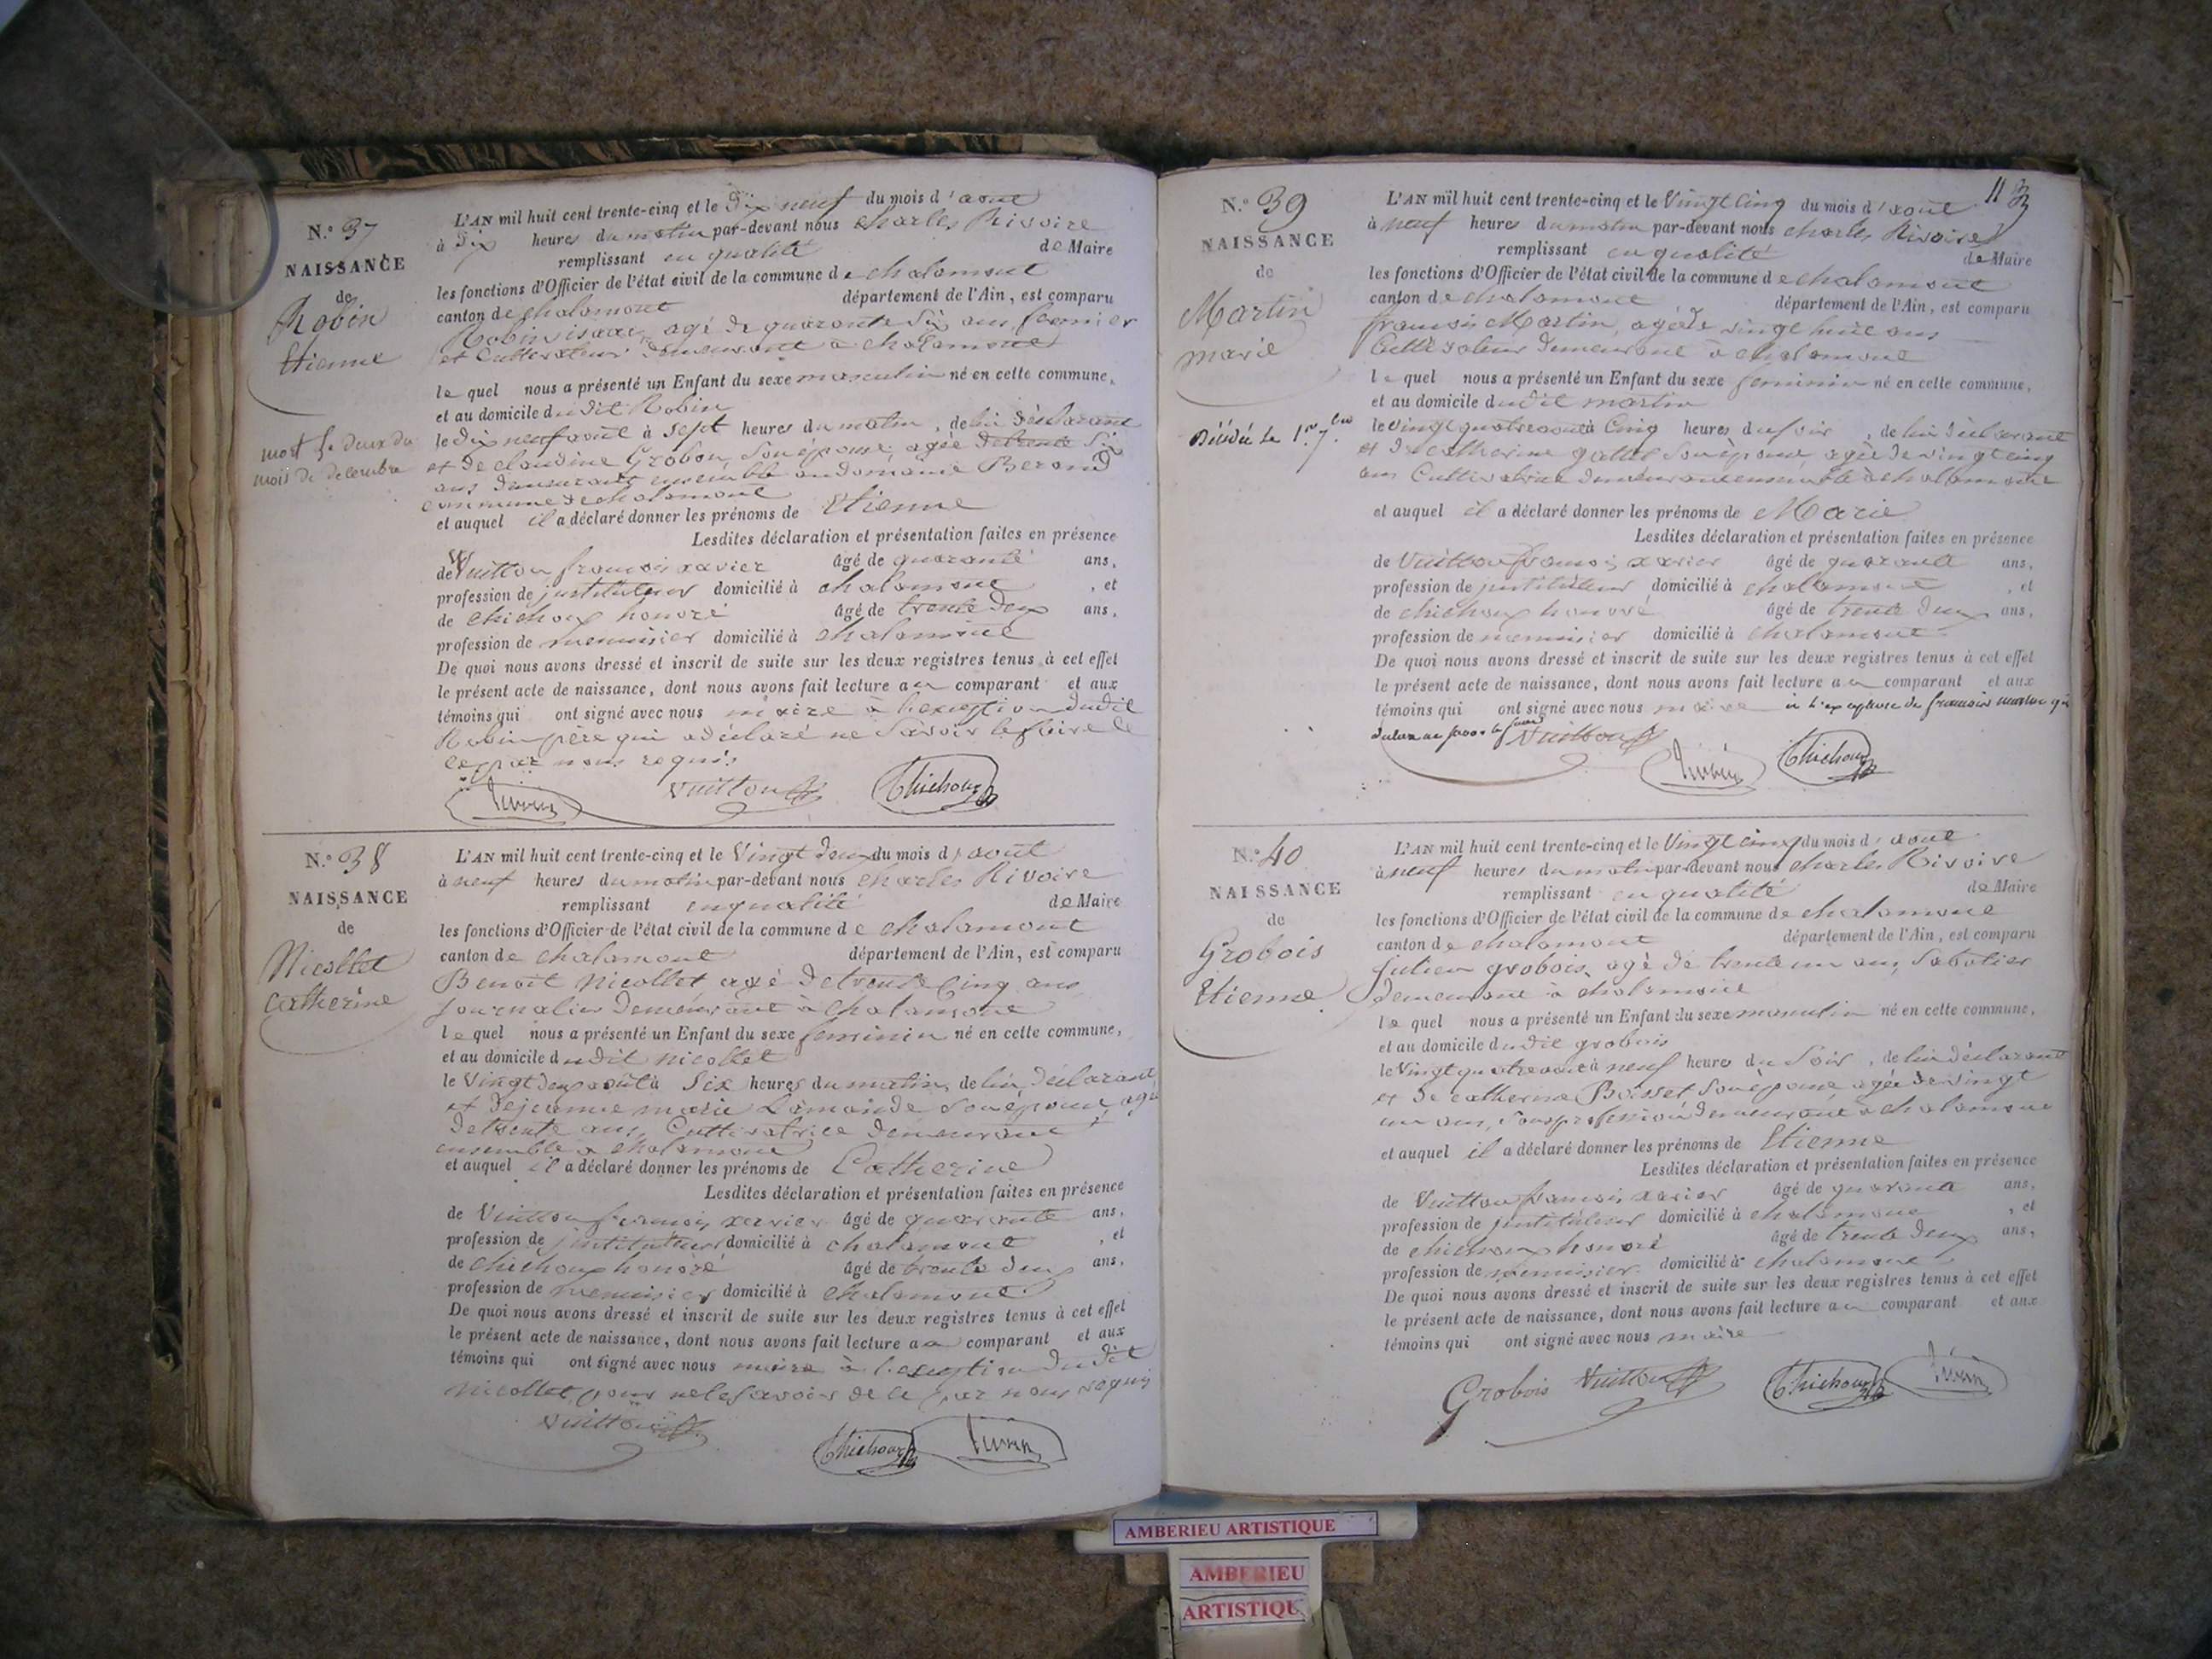 N.° 37
NAISSANCE
de
Robin
Etienne
mort le deux du
mois de decembre
L'AN mil huit cent trente-cinq et le Dix neuf du mois d'aout
à Dix heures du matin par-devant nous charles Rivoire
remplissant en qualité de Maire
les fonctions d'Officier de l'état civil de la commune de chalamont
canton de chalamont département de l'Ain, est comparu
Robin isaac, agé de quarante Six ans, fermier
et Cultivateur demeurant à chalamont
le quel nous a présenté un Enfant du sexe masculin né en cette commune,
et au domicile dudit Robin
le dix neuf août à Sept heures du matin, de lui déclarant
et de claudine Grobon, Son épouse, agée de trente Six
ans demeurant ensemble au domaine Berand
commune de chalamont
et auquel il a déclaré donner les prénoms de Etienne
Lesdites déclaration et présentation faites en présence
de Vuitton françois xavier âgé de quarante ans,
profession de instituteur domicilié à chalamont, et
de chichoux honoré âgé de trente deux ans,
profession de menuisier domicilié à chalamont
De quoi nous avons dressé et inscrit de suite sur les deux registres tenus à cet effet
le présent acte de naissance, dont nous avons fait lecture au comparant et aux
témoins qui ont signé avec nous maire à l'exception dudit
Robin père qui a déclaré ne Savoir le faire de
ce par nous requis
Vuitton Chichoux
N.° 38
NAISSANCE
de
Nicollet
Catherine
L'AN mil huit cent trente-cinq et le Vingt deux du mois d'août
à neuf heures du matin par-devant nous charles Rivoire
remplissant en qualité de Maire
les fonctions d'Officier de l'état civil de la commune de chalamont
canton de chalamont département de l'Ain, est comparu
Benoit Nicollet agé de trente Cinq ans
Journalier demeurant à Chalamont
le quel nous a présenté un Enfant du sexe feminin né en cette commune,
et au domicile dudit Nicollet
le Vingt deux août à Six heures du matin, de lui déclarant
et de jeanne marie Lamande Son épouse, agée
de trente ans, Cultivatrice demeurant
ensemble à chalamont
et auquel il a déclaré donner les prénoms de Catherine
Lesdites déclaration et présentation faites en présence
de Vuitton françois xavier âgé de quarante ans,
profession de instituteur domicilié à chalamont, et
de chichoux honoré âgé de trente deux ans,
profession de menuisier domicilié à chalamont
De quoi nous avons dressé et inscrit de suite sur les deux registres tenus à cet effet
le présent acte de naissance, dont nous avons fait lecture au comparant et aux
témoins qui ont signé avec nous maire à l'exception dudit
Nicollet pour ne le savoir de ce par nous requis
Vuitton Chichoux
113
N.° 39
NAISSANCE
de
Martin
marie
Décédée le 1er 7bre
L'AN mil huit cent trente-cinq et le Vingt Cinq du mois d'août
à neuf heures du matin par-devant nous charles Rivoire
remplissant en qualité de Maire
les fonctions d'Officier de l'état civil de la commune de chalamont
canton de chalamont département de l'Ain, est comparu
françois Martin, agé de vingt huit ans
Cultivateur demeurant à chalamont
le quel nous a présenté un Enfant du sexe feminin né en cette commune,
et au domicile dudit martin
le vingt quatre août à Cinq heures du soir, de lui déclarant
et de catherine gallet Son épouse, agée de vingt cinq
ans Cultivatrice demeurant ensemble à chalamont
et auquel il a déclaré donner les prénoms de Marie
Lesdites déclaration et présentation faites en présence
de Vuitton françois xavier âgé de quarante ans,
profession de instituteur domicilié à chalamont, et
de chichoux honoré âgé de trente deux ans,
profession de menuisier domicilié à chalamont
De quoi nous avons dressé et inscrit de suite sur les deux registres tenus à cet effet
le présent acte de naissance, dont nous avons fait lecture au comparant et aux
témoins qui ont signé avec nous maire à l'exception de francois martin qui
Vuitton
Chichoux
N.° 40
NAISSANCE
de
Grobois
Etienne
L'AN mil huit cent trente-cinq et le Vingt cinq du mois d'août
à neuf heures du matin par-devant nous charles Rivoire
remplissant en qualité de Maire
les fonctions d'Officier de l'état civil de la commune de chalamont
canton de chalamont département de l'Ain, est comparu
julien grobois, agé de trente un ans, Sabotier
demeurant à chalamont
le quel nous a présenté un Enfant du sexe masculin né en cette commune,
et au domicile dudit grobois
le Vingt quatre août à neuf heures du Soir, de lui déclarant
et de catherine Boisset Son épouse agée de vingt
un ans, Sans profession demeurant à chalamont
et auquel il a déclaré donner les prénoms de Etienne
Lesdites déclaration et présentation faites en présence
de Vuitton françois xavier âgé de quarante ans,
profession de instituteur domicilié à chalamont, et
de chichoux honoré âgé de trente deux ans,
profession de menuisier domicilié à chalamont
De quoi nous avons dressé et inscrit de suite sur les deux registres tenus à cet effet
le présent acte de naissance, dont nous avons fait lecture au comparant et aux
témoins qui ont signé avec nous maire
Grobois Vuitton Chichoux
AMBERIEU ARTISTIQUE
AMBERIEU
ARTISTIQUE